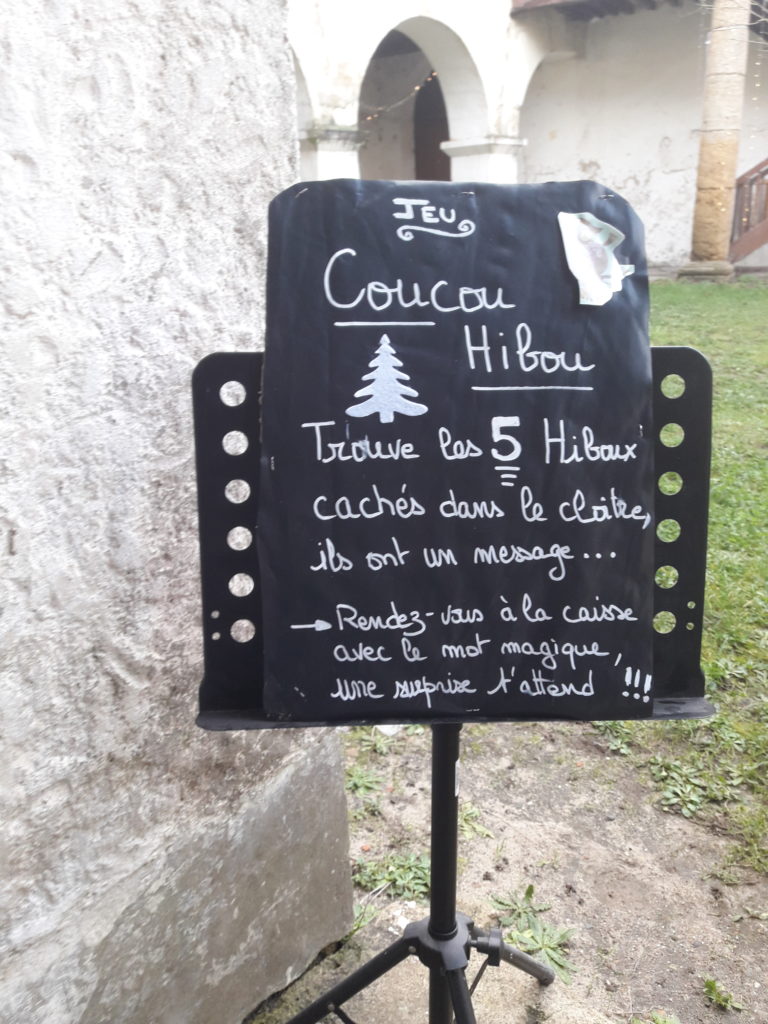 JEU
Coucou
Hibou
Trouve les 5 Hiboux
cachés dans le cloître,
ils ont un message...
→ Rendez-vous à la caisse
avec le mot magique,
une surprise t'attend !!!